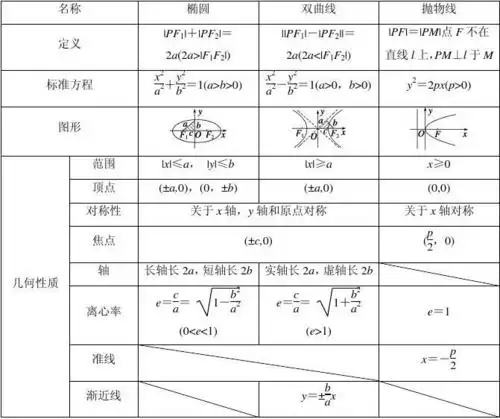 名称 椭圆 双曲线 抛物线
定义 |PF₁|+|PF₂|=2a(2a>|F₁F₂|) ||PF₁|-|PF₂||=2a(2a<|F₁F₂|) |PF|=|PM|点 F 不在直线 l 上,PM⊥l 于 M
标准方程 x²/a²+y²/b²=1(a>b>0) x²/a²-y²/b²=1(a>0,b>0) y²=2px(p>0)
图形 y a b F₁ c O F₂ x y a b F₁ O F₂ x y O F x
几何性质
范围 |x|≤a, |y|≤b |x|≥a x≥0
顶点 (±a,0),(0,±b) (±a,0) (0,0)
对称性 关于 x 轴,y 轴和原点对称 关于 x 轴对称
焦点 (±c,0) (p/2,0)
轴 长轴长 2a,短轴长 2b 实轴长 2a,虚轴长 2b
离心率 e=c/a=√(1-b²/a²) (0<e<1) e=c/a=√(1+b²/a²) (e>1) e=1
准线 x=-p/2
渐近线 y=±b/a x